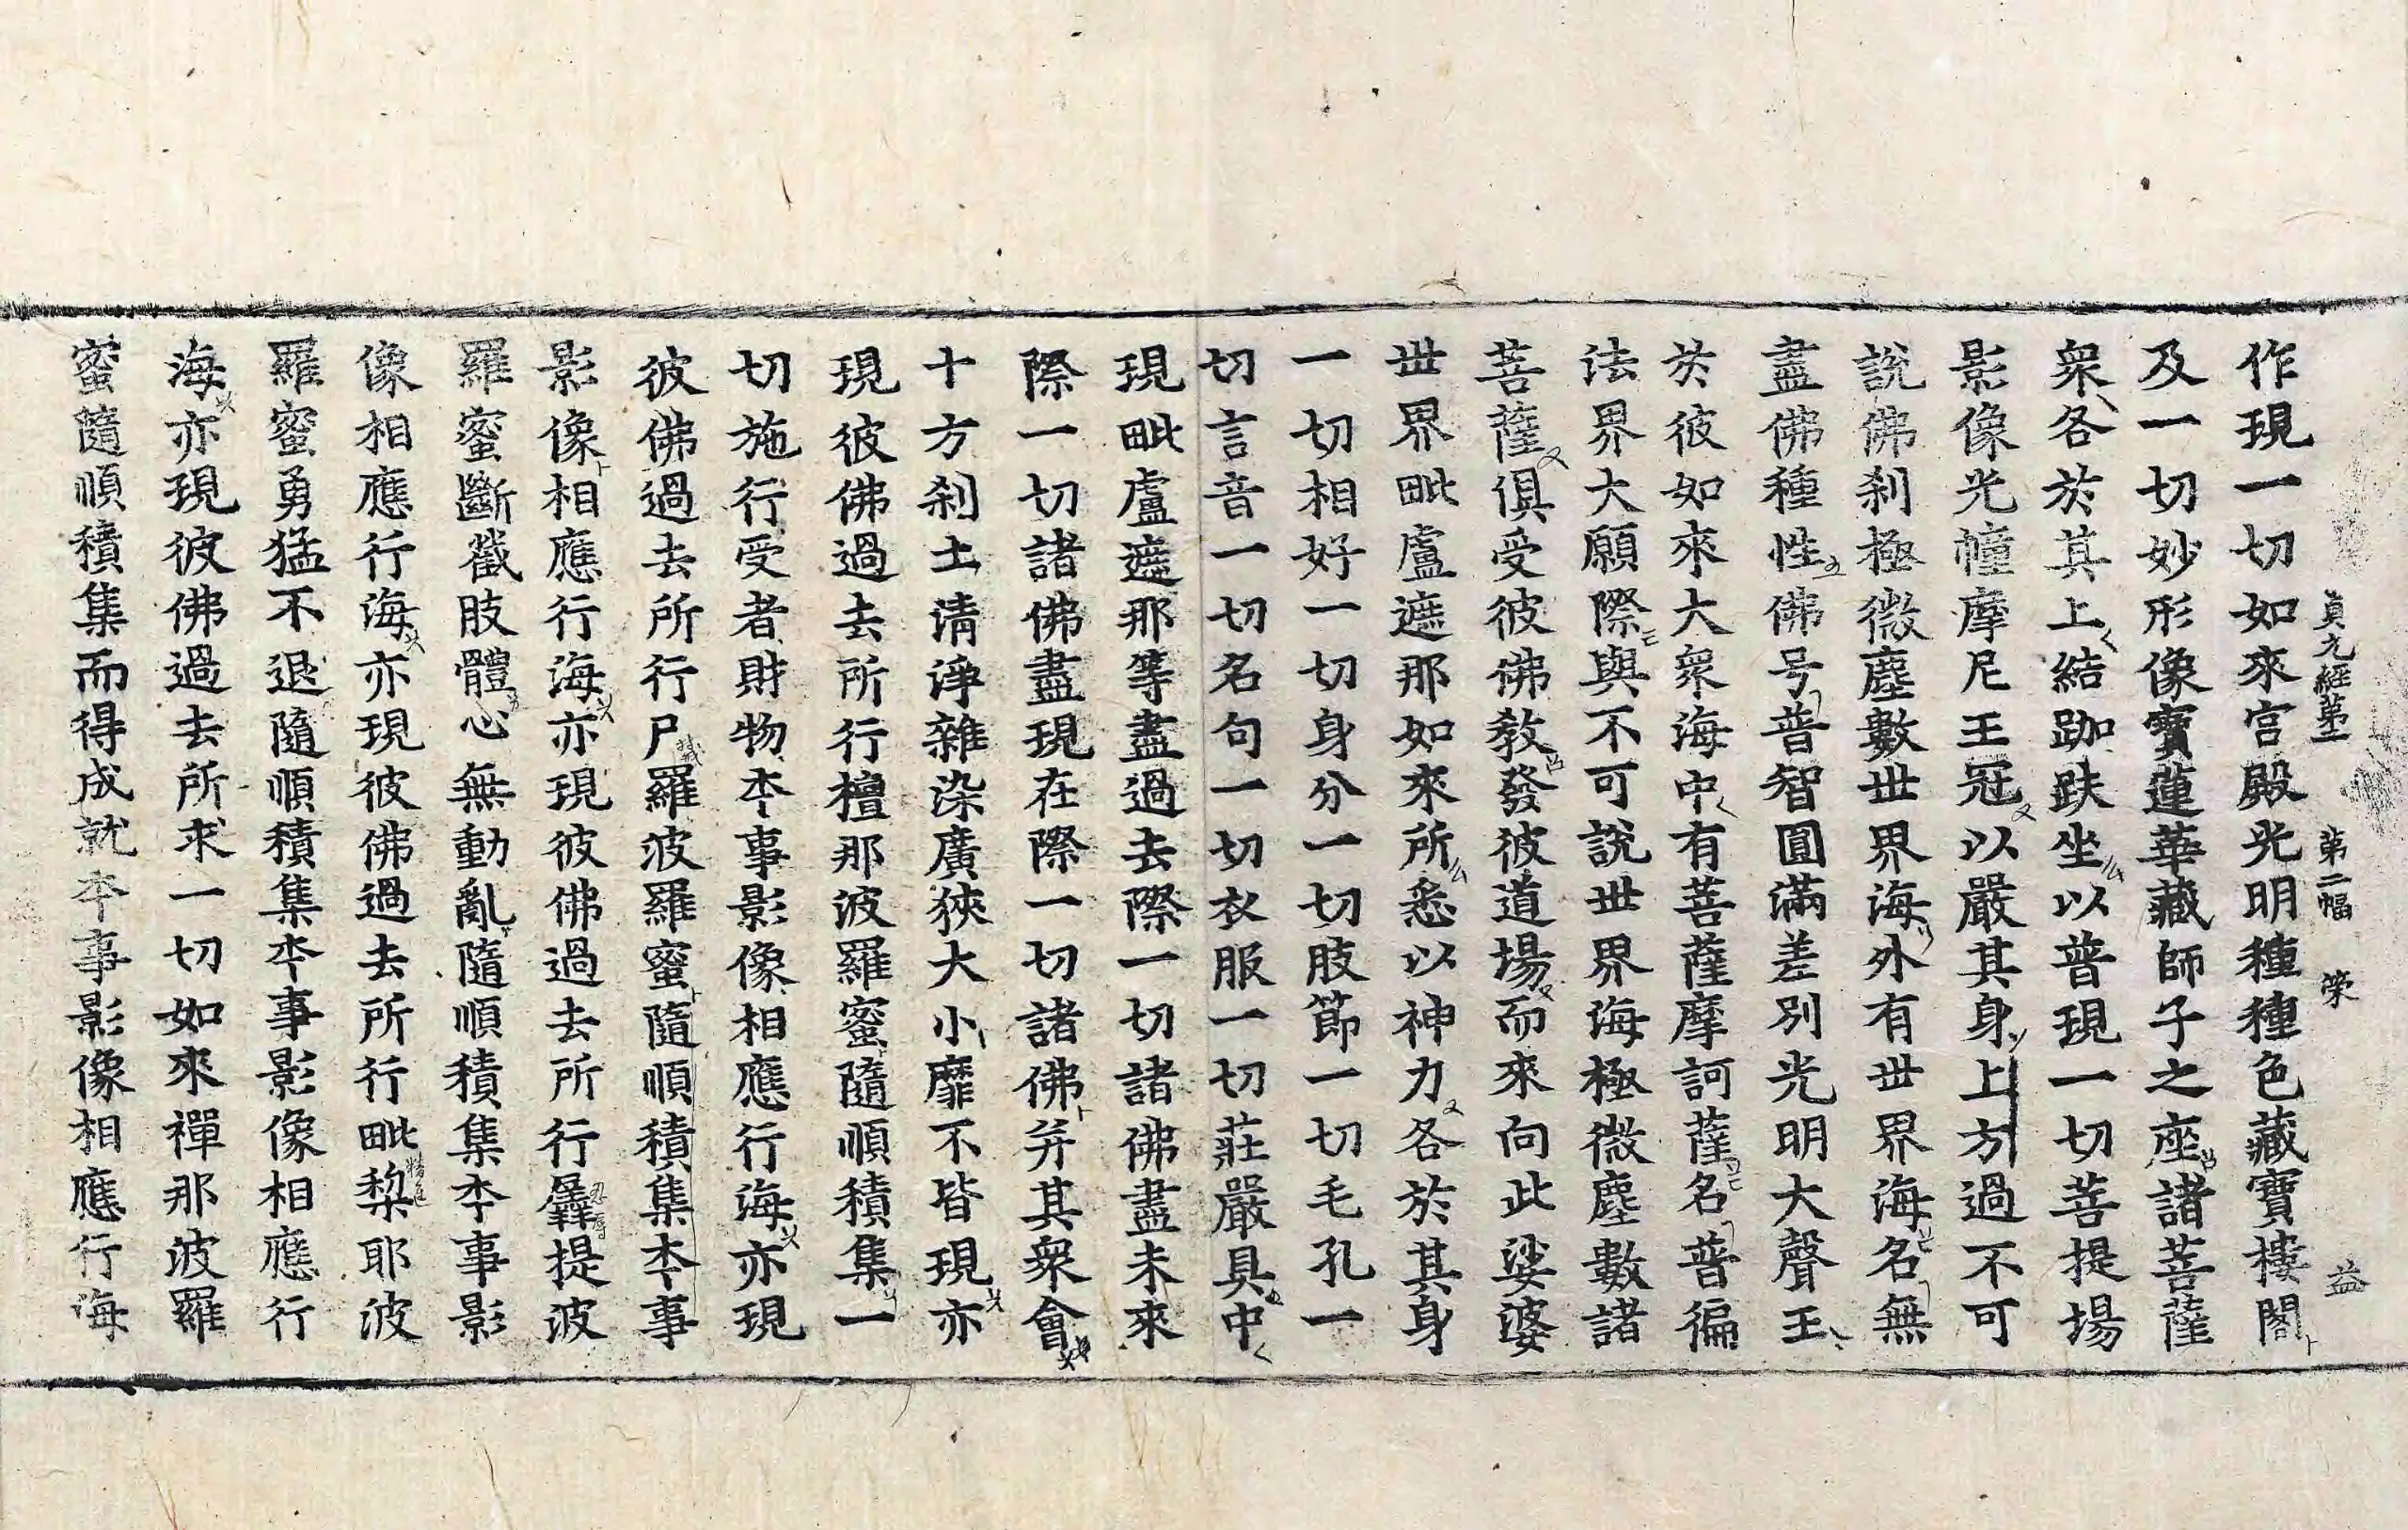 貞元經第二 第二幅 榮 益
作現一切如來宮殿光明種種色藏寶樓閣
及一切妙形像寶蓮華藏師子之座諸菩薩
衆各於其上結跏趺坐以普現一切菩提場
影像光幢摩尼王冠以嚴其身上方過不可
說佛刹極微塵數世界海外有世界海名無
盡佛種性佛号普智圓滿差別光明大聲王
於彼如來大衆海中有菩薩摩訶薩名普徧
法界大願際與不可說世界海極微塵數諸
菩薩俱受彼佛教發彼道場而來向此娑婆
世界毗盧遮那如來所悉以神力各於其身
一切相好一切身分一切肢節一切毛孔一
切言音一切名句一切衣服一切莊嚴具中
現毗盧遮那等盡過去際一切諸佛盡未來
際一切諸佛盡現在際一切諸佛并其衆會
十方刹土清淨雜染廣狹大小靡不皆現亦
現彼佛過去所行檀那波羅蜜隨順積集一
切施行受者財物本事影像相應行海亦現
彼佛過去所行尸羅波羅蜜隨順積集本事
影像相應行海亦現彼佛過去所行羼提波
羅蜜斷截肢體心無動亂隨順積集本事影
像相應行海亦現彼佛過去所行毗棃耶波
羅蜜勇猛不退隨順積集本事影像相應行
海亦現彼佛過去所求一切如來禪那波羅
蜜隨順積集而得成就本事影像相應行海